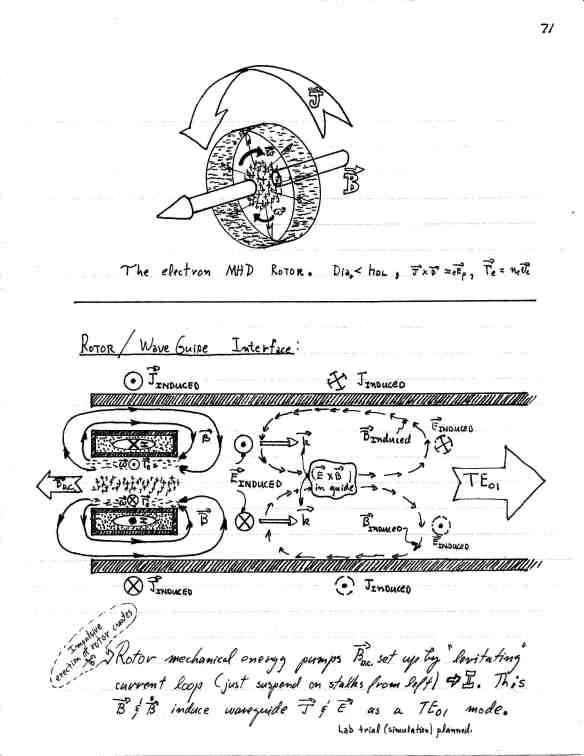 71
J
ω
B
ω
The electron MHD ROTOR. Dia. <
ROTOR / WAVE GUIDE Interface:
J INDUCED
J INDUCED
B
B DC
E INDUCED
k
B Induced
E INDUCED
(E x B)
in guide
TE01
B
k
B INDUCED
E INDUCED
J INDUCED
J INDUCED
Impulsive
erection of rotor creates
B
Rotor mechanical energy pumps B DC set up by "levitating"
current loop (just suspend on stalks from left) ⇨ I. This
B & B induce waveguide J & E as a TE01 mode.
Lab trial (simulation) planned.